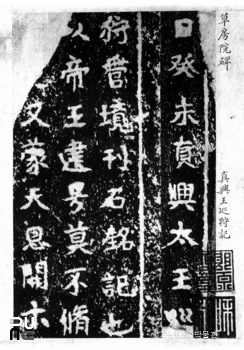 草房院碑
真興王巡狩記
日癸未真興太王巡
狩管境刊石銘記也
以帝王建号莫不脩
又蒙天恩開示